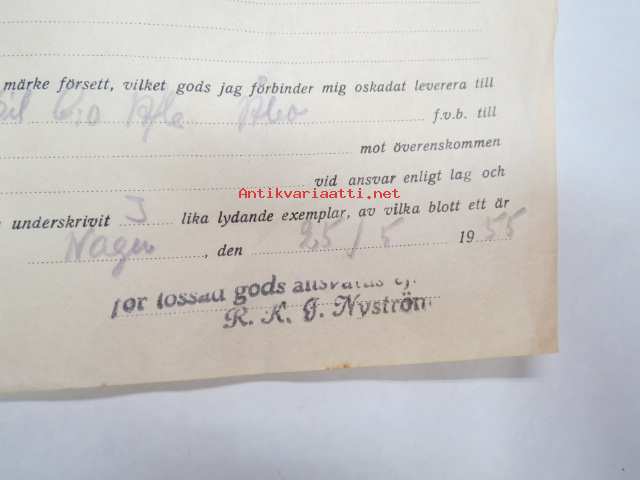 märke försett, vilket gods jag förbinder mig oskadat leverera till
Åbo f.v.b. till
mot överenskommen
vid ansvar enligt lag och
Antikvariaatti.net
underskrivit 3 lika lydande exemplar, av vilka blott ett är
Nagu, den 25/5 1955
för lossad gods ansvaras ej.
R. K. G. Nyström